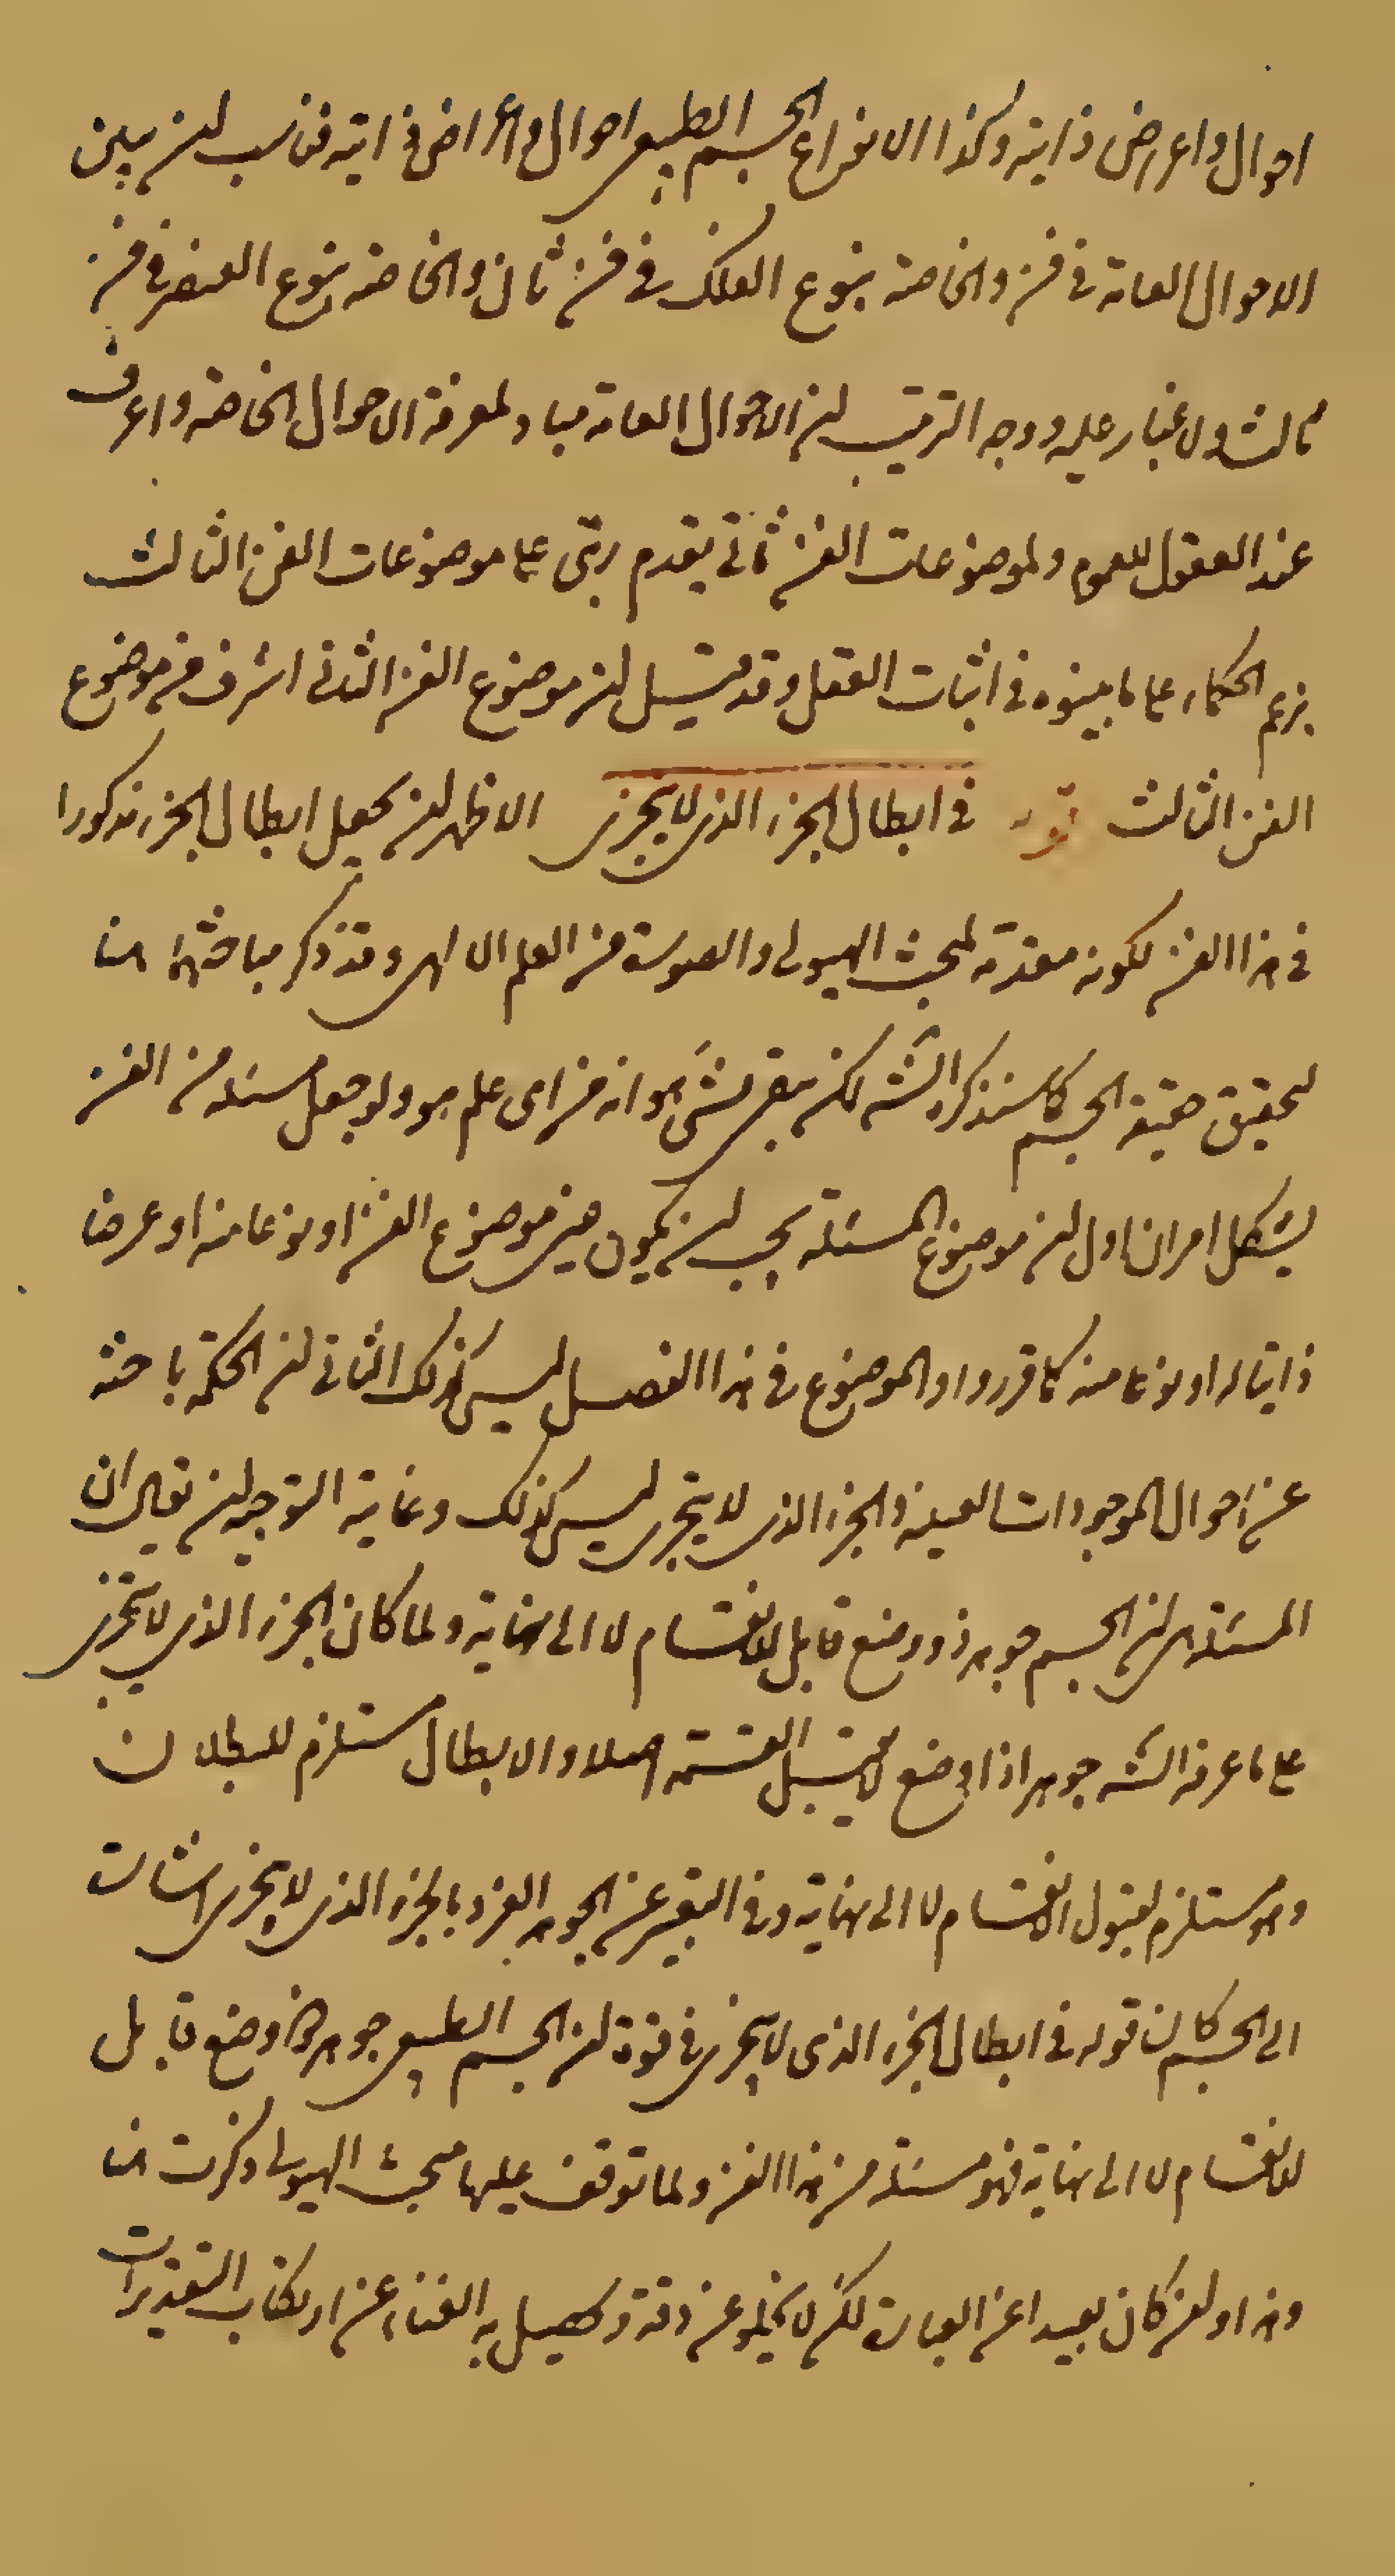 احوال واعراض ذاتية وكذا الانواع الجسم الطبيعي احوال واعراض ذاتية فناسب ان يبين
الاحوال العامة في فن والخاصة بنوع الفلك في فن ثان والخاصة بنوع العنصر في فن
ثالث ولا غبار عليه ووجه الترتيب ان الاحوال العامة مباد لمعرفة الاحوال الخاصة واعرف
عند العقول للعموم ولموضوعات الفن ثاني تقدم رتبي على موضوعات الفن الثالث
بزعم الحكماء على ما بينوه في اثبات العقل وقد قيل ان موضوع الفن الثاني اشرف من موضوع
الفن الثالث قوله في ابطال الجزء الذي لا يتجزى الاظهر ان يجعل ابطال الجزء مذكورا
في هذا الفن لكونه مقدمة لمبحث الهيولى والصورة من العلم الالهي وقد ذكر مباحثها هنا
لتحقيق حقيقة الجسم كما سنذكر الشه لكن بقي شئ هو انه من اي علم هو ولو جعل مسئلة من الفن
يشكل امران اول ان موضوع المسئلة يجب ان يكون عين موضوع الفن او نوعا منه او عرضا
ذاتيا له او نوعا منه كما قرروا والموضوع في هذا الفصل ليس كذلك الثاني ان الحكمة باحثة
عن احوال الموجودات العينية والجزء الذي لا يتجزى ليس كذلك وغاية التوجيه ان يقال ان
المسئلة هي ان الجسم جوهر ذو وضع قابل للانقسام لا الى نهاية ولما كان الجزء الذي لا يتجزى
على ما عرفه الشه جوهرا ذا وضع لا يقبل القسمة اصلا والابطال مستلزم للبطلان
وهو مستلزم لقبول الانقسام لا الى نهاية وفي التعبير عن الجوهر الفرد بالجزء الذي لا يتجزى اشارت
الى الجسم كان قوله في ابطال الجزء الذي لا يتجزى في قوة ان الجسم الطبيعي جوهر ذو وضع قابل
للانقسام لا الى نهاية فهو مسئلة من هذا الفن ولما توقف عليها مبحث الهيولى ذكرت هنا
وهذا وان كان بعيدا عن العبارة لكن لا يخلو عن دقة وتحصيل به الغناء عن ارتكاب التقديرات